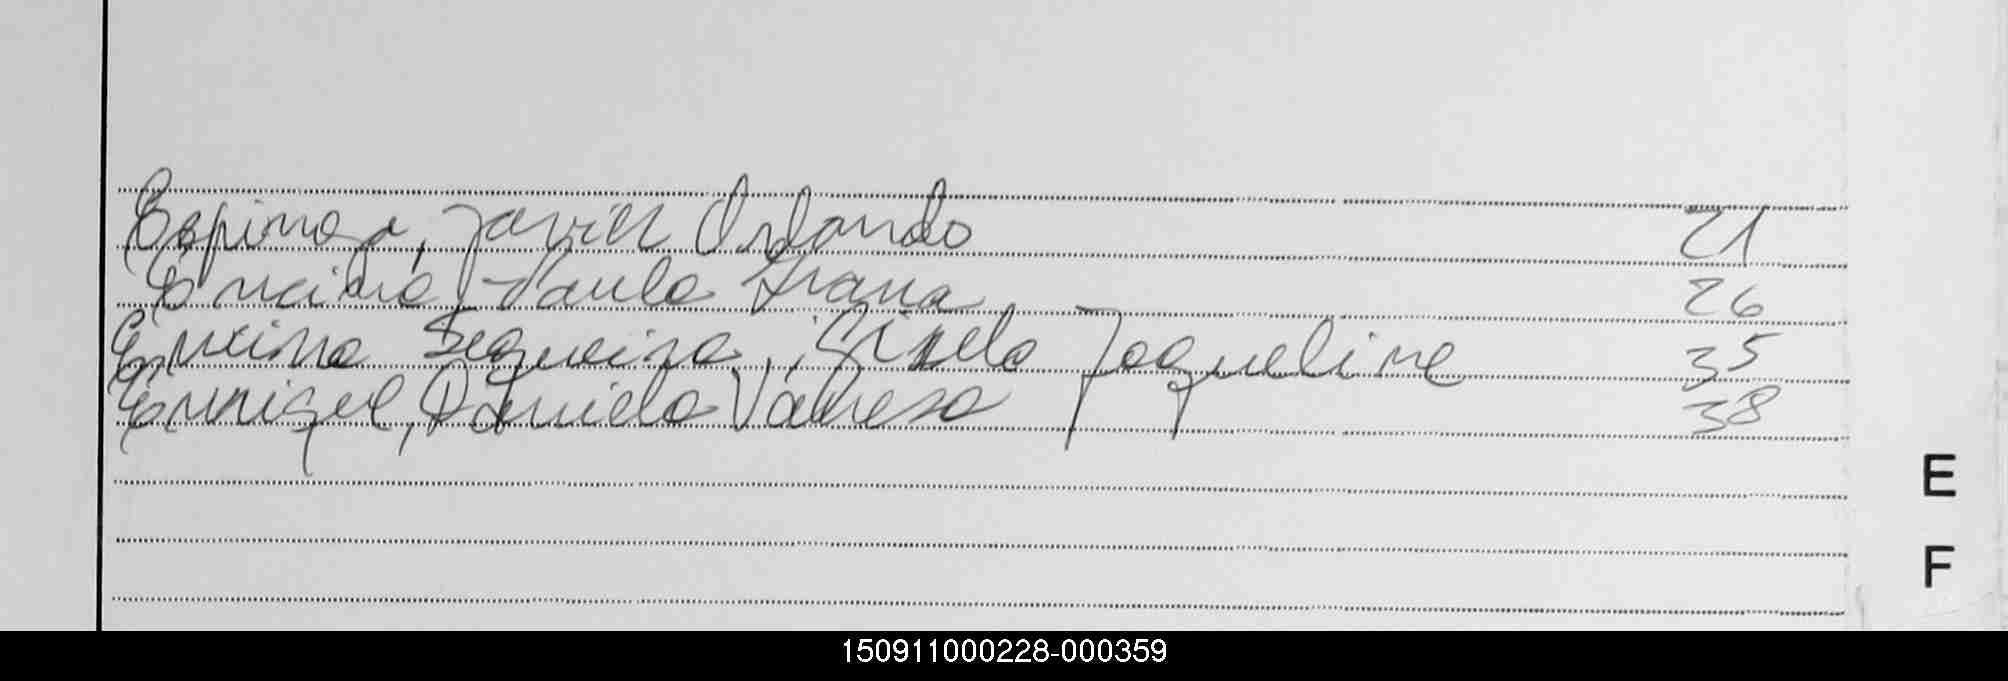 Espinoza, Javier Orlando 21
Encina, Paula Ivana 26
Encina Sequeira, Gisela Jaqueline 35
Enriquel, Daniela Vanesa 38
E
F
150911000228-000359